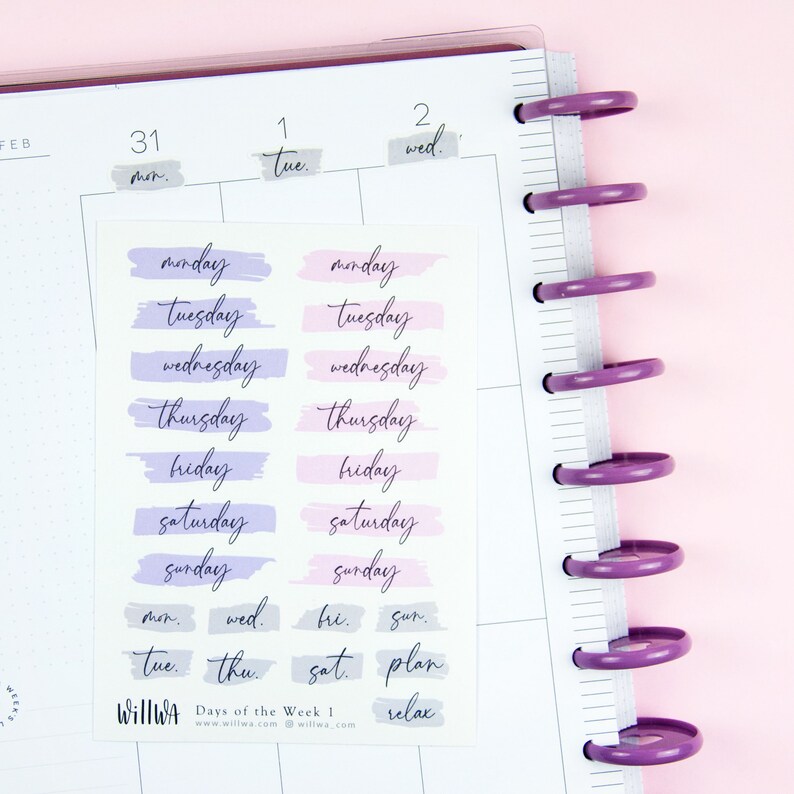 FEB
31 1 2
mon. tue. wed.
monday monday
tuesday tuesday
wednesday wednesday
thursday thursday
friday friday
saturday saturday
sunday sunday
mon. wed. fri. sun.
tue. thu. sat. plan
relax
WillWA Days of the Week 1
www.willwa.com willwa_com
WEEK'S